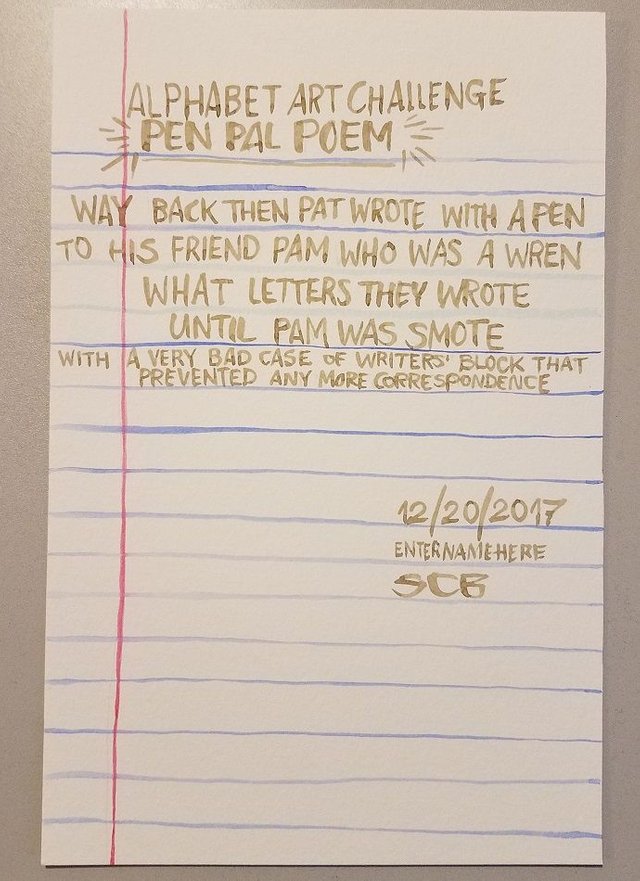 ALPHABET ART CHALLENGE
PEN PAL POEM
WAY BACK THEN PAT WROTE WITH A PEN
TO HIS FRIEND PAM WHO WAS A WREN
WHAT LETTERS THEY WROTE
UNTIL PAM WAS SMOTE
WITH A VERY BAD CASE OF WRITERS' BLOCK THAT
PREVENTED ANY MORE CORRESPONDENCE
12/20/2017
ENTERNAMEHERE
SCB